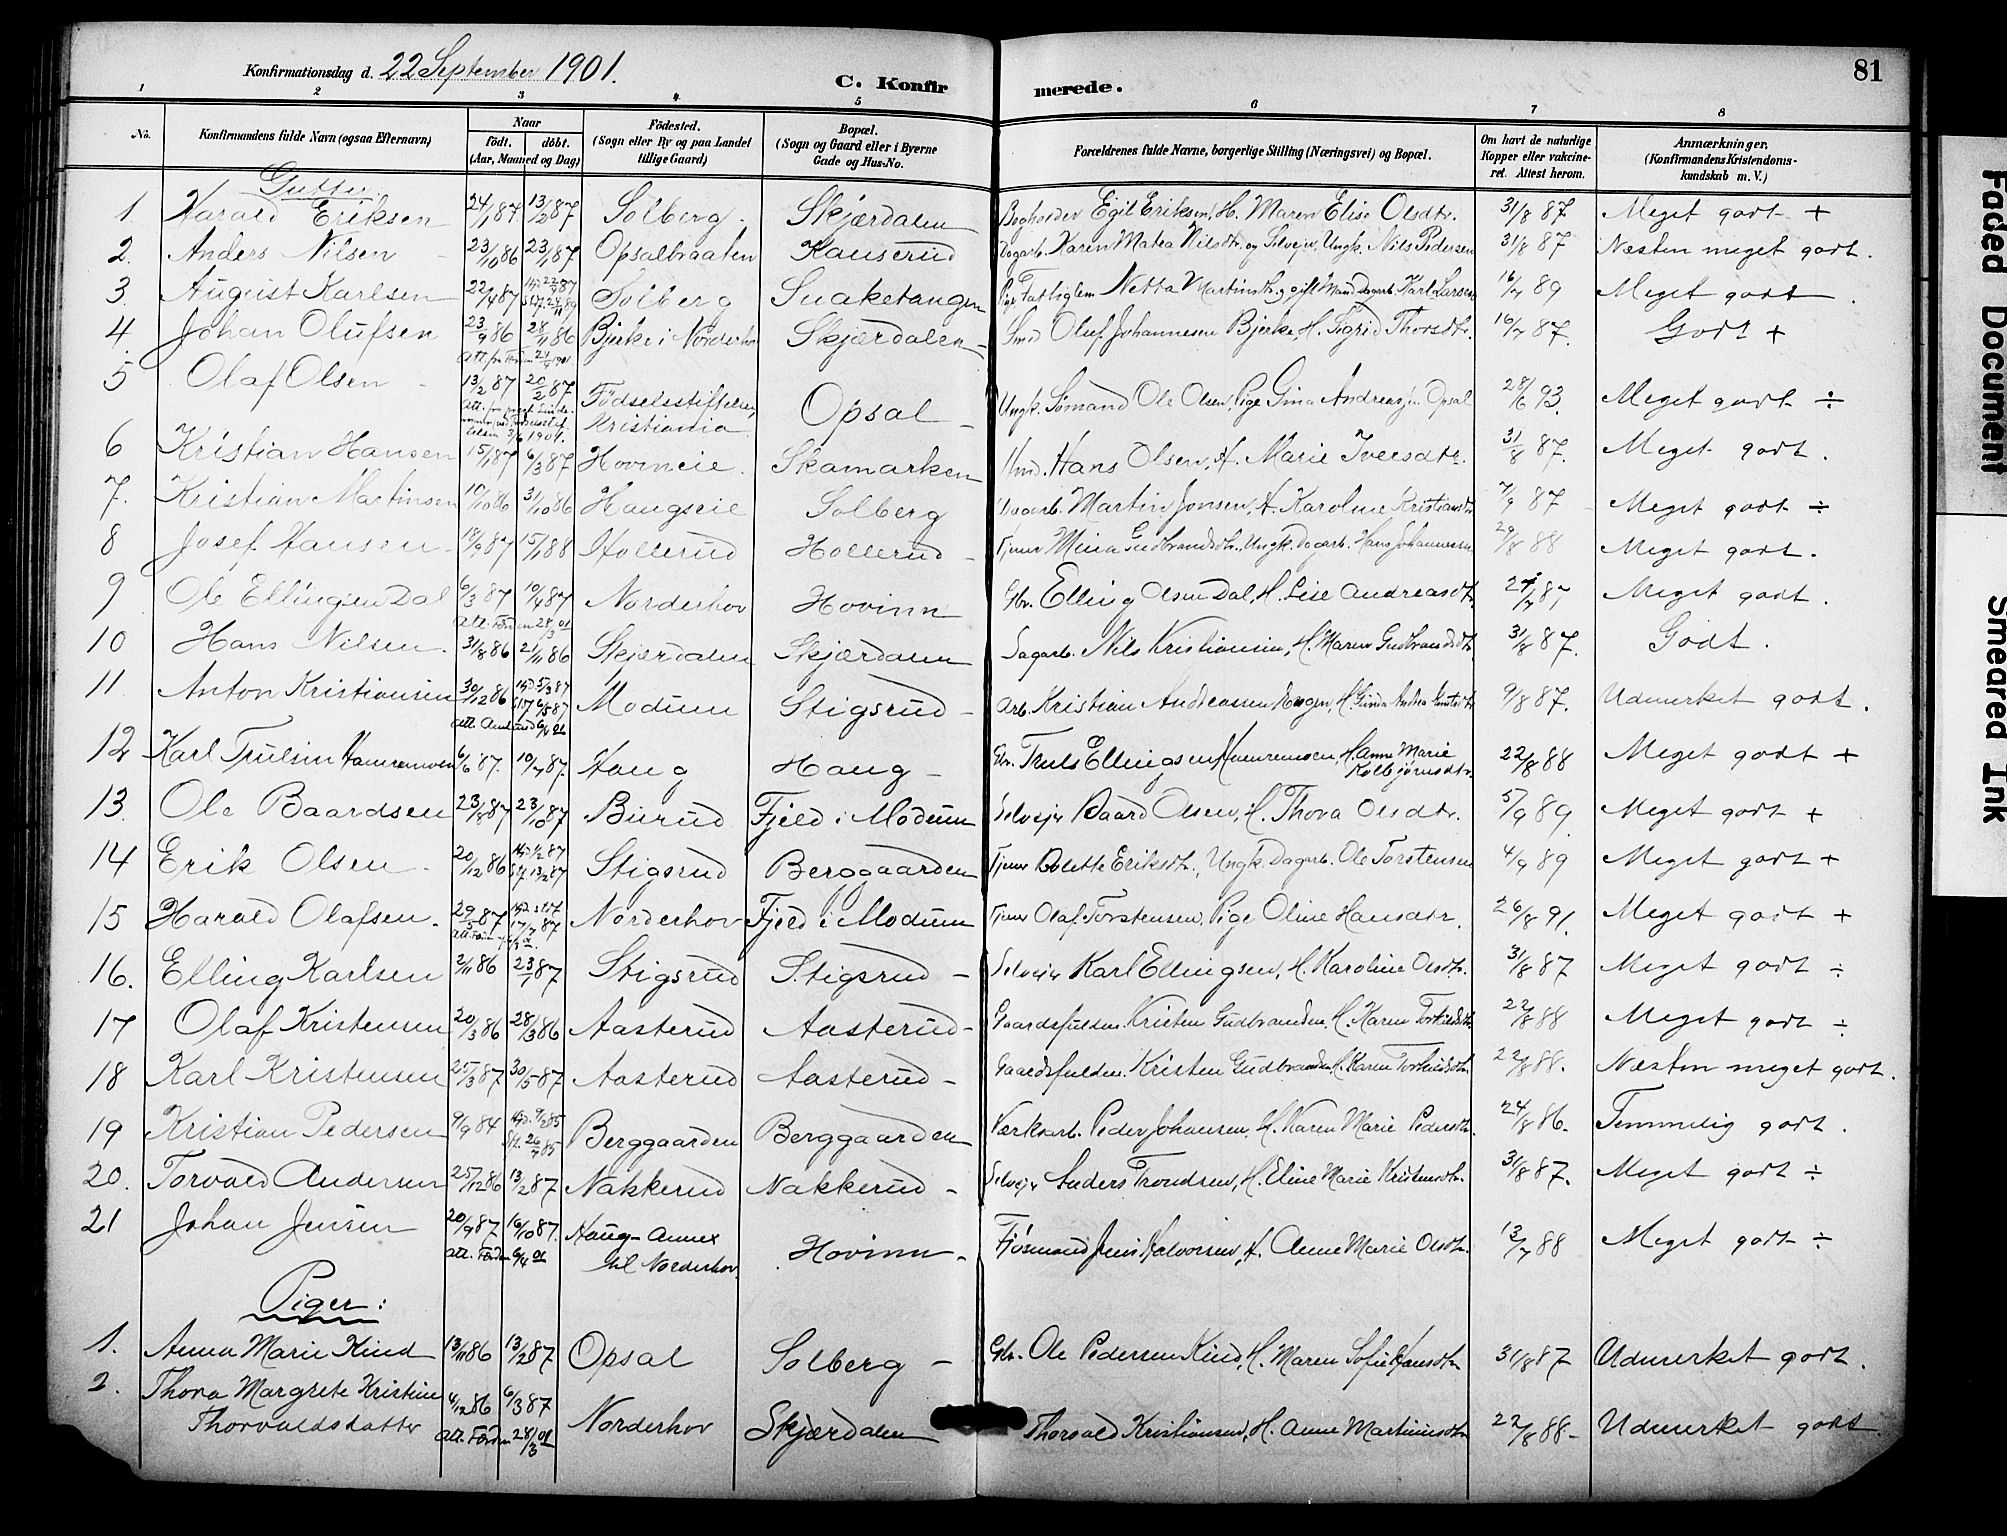 Konfirmationsdag d. 22 September 1901.
C. Konfirmerede.
81
1 2 3 4 5 6 7 8
No.
Konfirmandens fulde Navn (ogsaa Efternavn)
Naar
født. døbt.
(Aar, Maaned og Dag)
Fødested.
(Sogn eller By og paa Landet
tillige Gaard)
Bopæl.
(Sogn og Gaard eller i Byerne
Gade og Hus-No.
Forældrenes fulde Navne, borgerlige Stilling (Næringsvei) og Bopæl.
Om havt de naturlige
Kopper eller vakcine-
ret. Attest herom.
Anmærkninger.
(Konfirmandens Kristendoms-
kundskab m. V.)
Gutter:
1. Harald Eriksen 24/1 87 13/2 87 Solberg. Skjærdalen Egil Eriksen, H. Maren Elise Olsdtr. 31/8 87 Meget godt +
2. Anders Nilsen 23/10 86 23/1 87 Opsalbraaten Kauserud Dagarb. Karen Matea Nilsdtr. og Selvejer, Ungk. Nils Pedersen 31/8 87 Næsten meget godt.
3. August Karlsen 22/4 87 Solberg Snaketangen Netta Martinsdtr. gift Mand Dagarb. Karl Larsen 16/7 89 Meget godt.
4 Johan Olufsen 23/9 86 28/11 86 Bjerke i Norderhov Skjærdalen Smed Oluf Johannesen Bjerke, H. Sigrid Thorsdtr. 16/7 87. Godt +
5 Olaf Olsen 13/2 87 20/2 87 Fødselsstiftelsen, Kristiania Opsal Ungk. Sømand Ole Olsen, Pige Gina Andreasen Opsal 28/6 93. Meget godt ÷
6 Kristian Hansen 15/1 87 6/3 87 Hovineie. Skamarken Hans Olsen, H. Marie Iversdtr. 31/8 87. Meget godt.
7. Kristian Martinsen 10/10 86 31/10 86 Haugseie Solberg Dagarb. Martin Jonsen, H. Karoline Kristiansdtr. 7/9 87 Meget godt ÷
8 Josef Hansen 18/9 87 15/1 88 Hollerud Hollerud Tjener Mina Gudbrandsdtr., Ungk. Dagarb. Hans Johannesen 29/8 88 Meget godt.
9 Ole Ellingsen Dal 6/3 87 10/4 87 Norderhov Hovinn Gbr. Elling Olsen Dal, H. Lise Andreasdtr. Meget godt.
Att. Førden 28/3 01
10 Hans Nilsen. 31/8 86 21/11 86 Skjærdalen Skjærdalen Dagarb. Nils Kristiansen, H. Maren Gudbrandsdtr. 31/8 87. Godt.
11 Anton Kristiansen 30/12 86 Modum Stigsrud Arb. Kristian Andreassen Haugen, H. Gina Andrea 9/8 87. Udmerket godt.
12 Karl Trulsen Hamremoen 6/6 87. 10/7 87. Haug Haug Gbr. Truls Ellingsen Hamremoen, H. Anne Marie Kolbjørnsdtr. 22/8 88 Meget godt +
13. Ole Baardsen 23/8 87 23/10 87 Burud Fjeld i Modum Selvejer Baard Olsen, H. Thora Olsdtr. 5/9 89. Meget godt +
14 Erik Olsen. 20/12 86 Stigsrud Berggaarden Tjener Bolette Eriksdtr., Ungk. Dagarb. Ole Torstensen 4/9 89 Meget godt +
15 Harald Olafsen. 29/5 87 Norderhov Fjeld i Modum Tjener Olaf Torstensen, Pige Oline Hansdtr. 26/8 91. Meget godt +
16. Elling Karlsen 2/11 86 23/1 87 Stigsrud Stigsrud Selvejer Karl Ellingsen, H. Karoline Olsdtr. 31/8 87 Meget godt ÷
17 Olaf Kristensen 20/3 86 28/3 86 Aasterud Aasterud Gaardsfulden. Kristen Gudbrandsen, H. Karen Torkildsdtr. 22/8 88 Meget godt ÷
18 Karl Kristensen 25/3 87 30/5 87 Aasterud Aasterud Gaardsfulden. Kristen Gudbrandsen, H. Karen Torkildsdtr. 22/8 88. Næsten meget godt.
19 Kristian Pedersen 9/9 84 Berggaarden Berggaarden Værksarb. Peder Johansen, H. Karen Marie Pedersdtr. 24/8 86. Temmelig godt.
20. Torvald Andersen 25/12 86 13/2 87 Nakkerud Nakkerud Selvejer Anders Trondsen, H. Eline Marie Kristensdtr. 31/8 87. Meget godt ÷
21 Johan Jensen 20/9 87 16/10 87. Haug- Annex til Norderhov. Hovinn Fjøsmand Jens Halvorsen, H. Anne Marie Olsdtr. 13/7 88 Meget godt ÷
Att. Førden 9/4 01
Piger:
1. Anna Marie Kind 13/11 86 13/2 87 Opsal Solberg Gbr. Ole Pedersen Kind, H. Maren Sofie Hansdtr. 31/8 87 Udmerket godt.
2. Thora Margrete Kristine Thorvaldsdatter 4/12 86 6/3 87 Norderhov Skjærdalen Thorvald Kristiansen, H. Anne Martinsdtr. 22/8 88 Udmerket godt.
Att. Førden 28/3 01
Faded Document
Smeared Ink